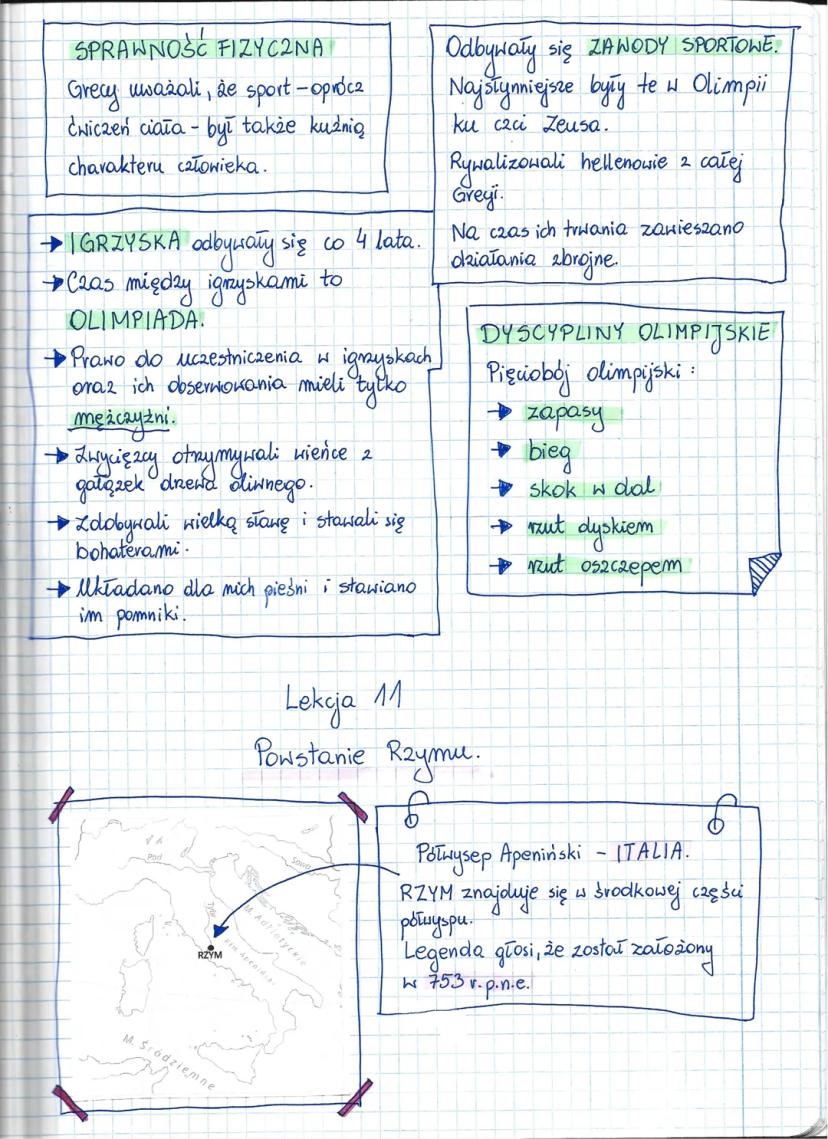 SPRAWNOŚĆ FIZYCZNA
Grecy uważali, że sport – oprócz
ćwiczeń ciała – był także kuźnią
charakteru człowieka.
Odbywały się ZAWODY SPORTOWE.
Najsłynniejsze były te w Olimpii
ku czci Zeusa.
Rywalizowali hellenowie z całej
Grecji.
Na czas ich trwania zawieszano
działania zbrojne.
→ IGRZYSKA odbywały się co 4 lata.
→ Czas między igrzyskami to
OLIMPIADA.
→ Prawo do uczestniczenia w igrzyskach
oraz ich obserwowania mieli tylko
mężczyźni.
→ Zwycięzcy otrzymywali wieńce z
gałązek drzewa oliwnego.
→ Zdobywali wielką sławę i stawali się
bohaterami.
→ Układano dla nich pieśni i stawiano
im pomniki.
DYSCYPLINY OLIMPIJSKIE
Pięciobój olimpijski :
→ zapasy
→ bieg
→ skok w dal
→ rzut dyskiem
→ rzut oszczepem
Lekcja 11
Powstanie Rzymu.
Pad
Sawa
Tybr
M. Adriatyckie
Płw. Apeniński
RZYM
M. Śródziemne
Półwysep Apeniński – ITALIA.
RZYM znajduje się w środkowej części
półwyspu.
Legenda głosi, że został założony
w 753 r. p.n.e.